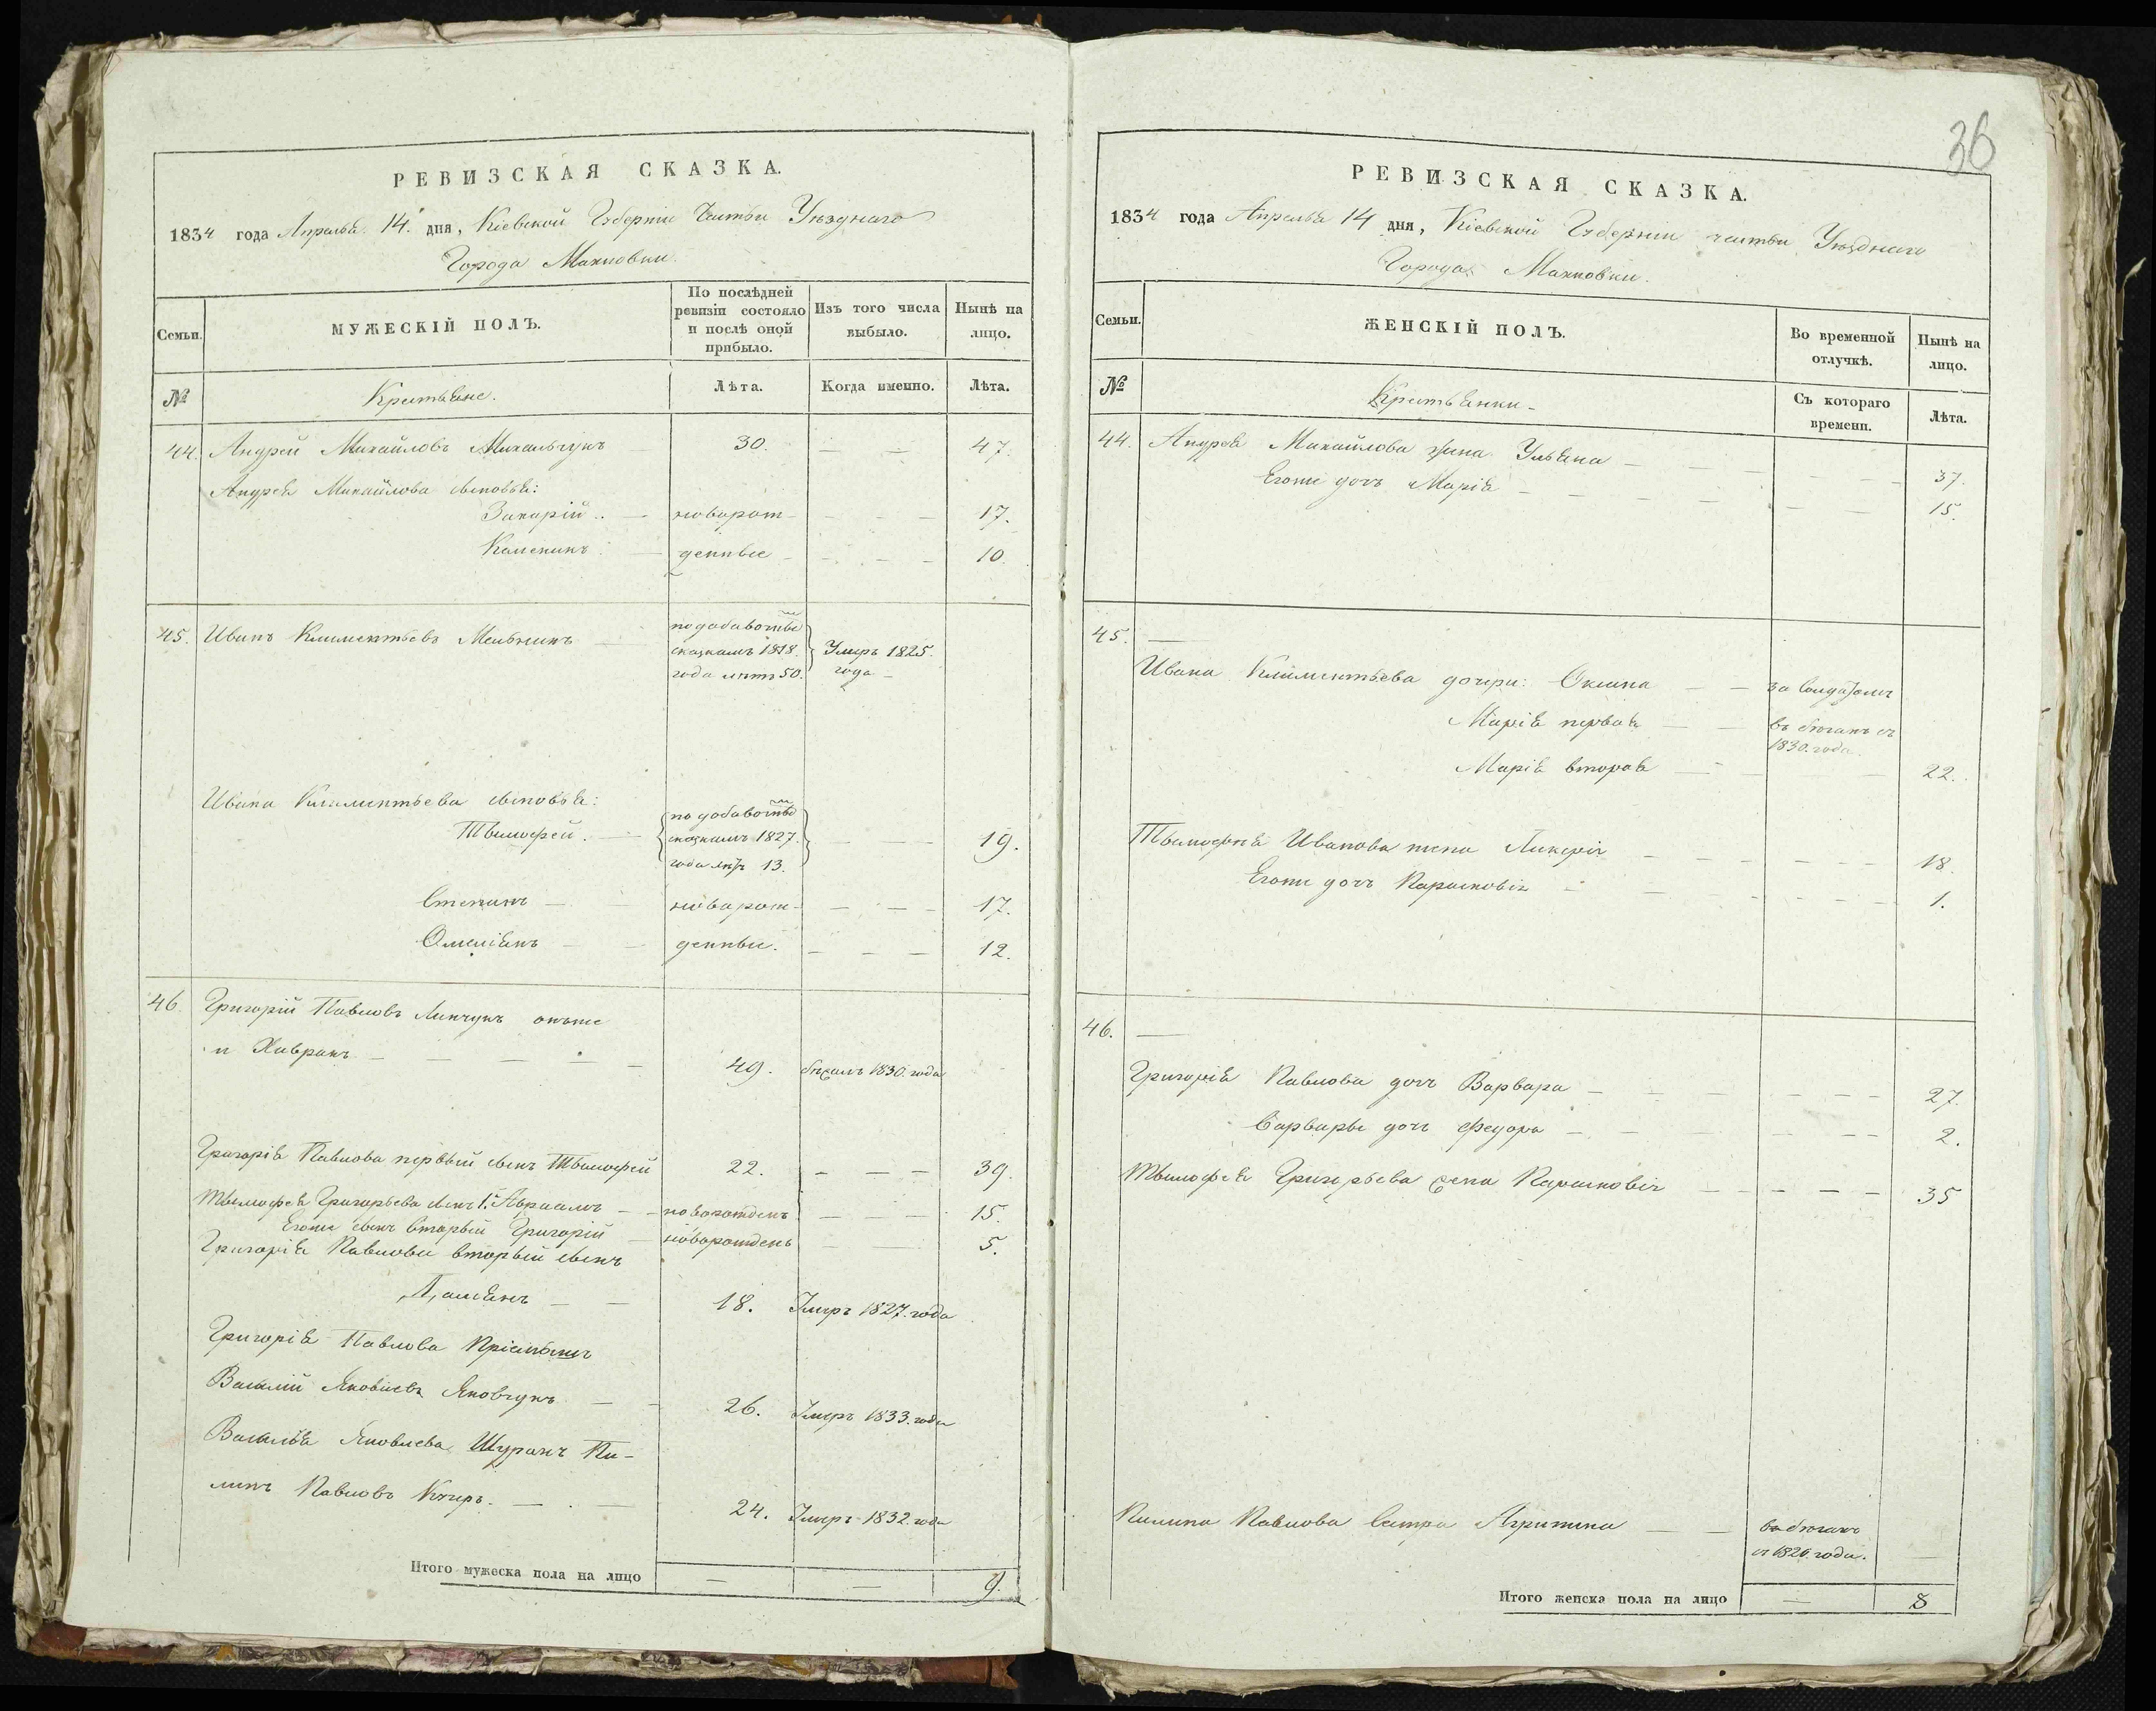 РЕВИЗСКАЯ СКАЗКА.
1834 года Апреля 14. дня, Кіевской Губерніи части Уѣзднаго
Города Махновки.
Семьи.
МУЖЕСКІЙ ПОЛЪ.
По послѣдней ревизіи состояло и послѣ оной прибыло.
Изъ того числа выбыло.
Нынѣ на лицо.
№
Крестьяне.
Лѣта.
Когда именно.
Лѣта.
44. Андрей Михайловъ Михальчукъ — 30. — — 47.
Андрея Михайлова сыновья:
Захарій — новорож- — — — 17.
денные — — — — 10.
45. Иванъ Климентьевъ Мельникъ — по добавочные сказкамъ 1818. года лѣтъ 50. Умеръ 1825. года —
Ивана Климентьева сыновья:
Тымофей. — по добавочные сказкамъ 1827. года лѣтъ 13. — — — 19.
Степанъ — — новорож- — — — 17.
Омеліянъ — — денные. — — — 12.
46. Григорій Павловъ Линчукъ онъже
и Хавранъ — — — — — 49. бѣжалъ 1830. года
Григорія Павлова первый сынъ Тымофей 22. — — — 39.
Тымофея Григорьева сынъ 1.й Авраамъ — новорожденъ — — — 15.
Егоже сынъ вторый Григорій — новорожденъ — — — 5.
Григорія Павлова вторый сынъ
Даміянъ — — 18. Умеръ 1827. года
Григорія Павлова
Василій Яковлевъ Яковчукъ — — 26. Умеръ 1833. года
Василія Яковлева Шуринъ Пи-
липъ Павловъ — — 24. Умеръ 1832. года
Итого мужеска пола на лицо — — 9.
36
РЕВИЗСКАЯ СКАЗКА.
1834 года Апреля 14 дня, Кіевской Губерніи части Уѣзднаго
Города Махновки.
Семьи.
ЖЕНСКІЙ ПОЛЪ.
Во временной отлучкѣ.
Нынѣ на лицо.
№
Крестьянки.
Съ котораго времени.
Лѣта.
44. Андрея Михайлова жена Ульяна — — — — — — 37.
Егоже дочь Марія — — — — — — 15.
45. —
Ивана Климентьева дочери: Оксана — — за солдатомъ
Марія первая — — въ бѣгахъ съ 1830. года.
Марія вторая — — — 22.
Тымофея Иванова жена Ликерія — — — — — — 18.
Егоже дочь Парасковія — — — — — — 1.
46. —
Григорія Павлова дочь Варвара — — — — — — 27.
Варвары дочь Федора — — — — — — 2.
Тымофея Григорьева жена Парасковія — — — — — 35
Пилипа Павлова Сестра Агрипина — — въ бѣгахъ съ 1826. года. —
Итого женска пола на лицо — 8